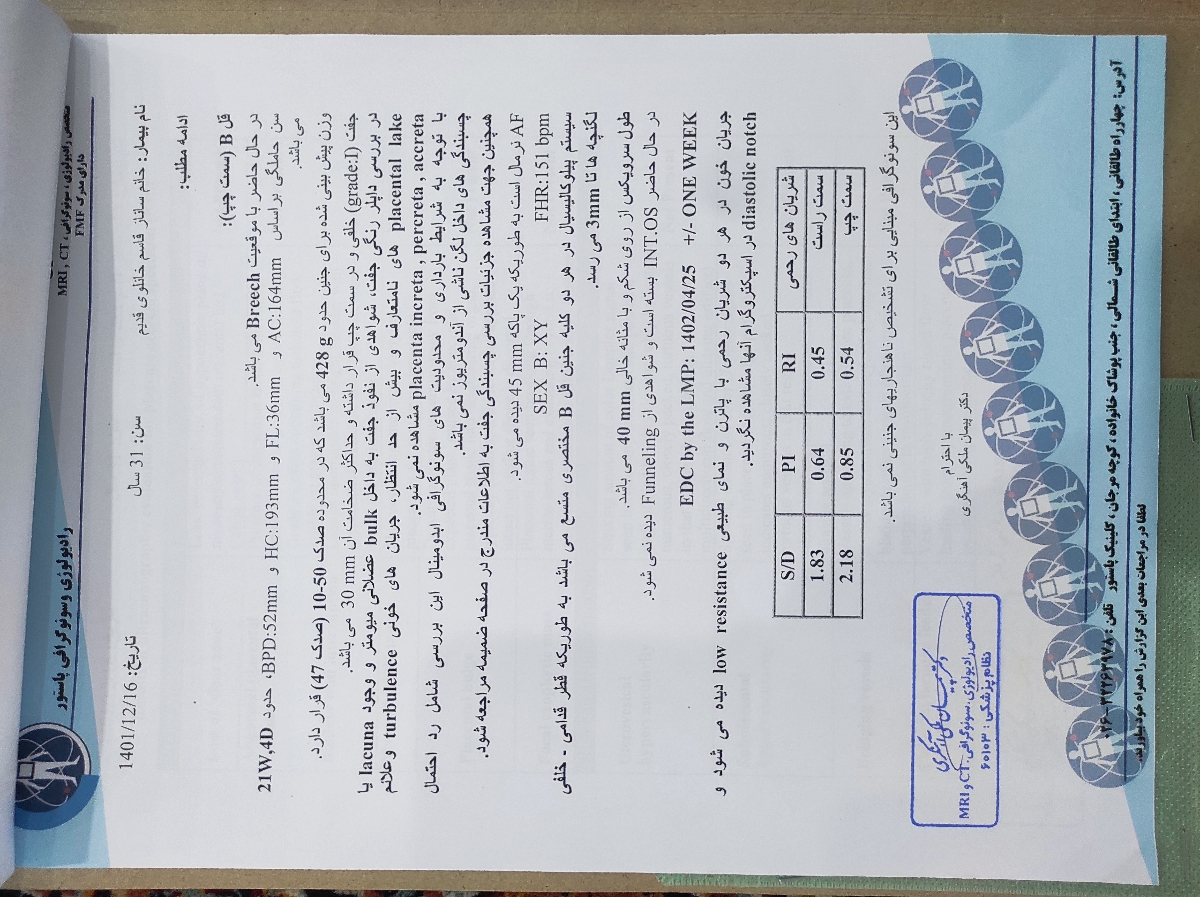 رادیولوژی و سونوگرافی پاستور
متخصص رادیولوژی، سونوگرافی، MRI , CT
دارای مدرک FMF
نام بیمار: خانم ساناز قاسم خانلوی قدیم سن: 31 سال تاریخ: 1401/12/16
ادامه مطلب:
قل B (سمت چپ):
در حال حاضر با موقعیت Breech می باشد.
سن حاملگی براساس AC:164mm و FL:36mm و HC:193mm و BPD:52mm، حدود 21W,4D
می باشد.
وزن پیش بینی شده برای جنین حدود 428 g می باشد که در محدوده صدک 50-10 (صدک 47) قرار دارد.
جفت (grade:I) خلفی و در سمت چپ قرار داشته و حداکثر ضخامت آن 30 mm می باشد.
در بررسی داپلر رنگی جفت، شواهدی از نفوذ جفت به داخل bulk عضلانی میومتر و وجود lacuna یا
placental lake های نامتعارف و بیش از حد انتظار، جریان های خونی turbulence وعلائم
placenta increta , percreta , accreta مشاهده نمی شود.
با توجه به شرایط بارداری و محدودیت های سونوگرافی ابدومینال این بررسی شامل رد احتمال
چسبندگی های داخل لگن ناشی از آندومتریوز نمی باشد.
همچنین جهت مشاهده جزئیات بررسی چسبندگی جفت به اطلاعات مندرج در صفحه ضمیمه مراجعه شود.
AF نرمال است به طوریکه یک پاکه 45 mm دیده می شود.
SEX B: XY FHR:151 bpm
سیستم پیلوکالیسیال در هر دو کلیه جنین قل B مختصری متسع می باشد به طوریکه قطر قدامی - خلفی
لگنچه ها تا 3mm می رسد.
طول سرویکس از روی شکم و با مثانه خالی 40 mm می باشد.
در حال حاضر INT.OS بسته است و شواهدی از Funneling دیده نمی شود.
EDC by the LMP: 1402/04/25 +/- ONE WEEK
جریان خون در هر دو شریان رحمی با پاترن و نمای طبیعی low resistance دیده می شود و
diastolic notch در اسپکتروگرام آنها مشاهده نگردید.
شریان های رحمی RI PI S/D
سمت راست 0.45 0.64 1.83
سمت چپ 0.54 0.85 2.18
این سونوگرافی مبنایی برای تشخیص ناهنجاریهای جنینی نمی باشد.
با احترام
دکتر پیمان ملکی آهنگری
متخصص رادیولوژی، سونوگرافی، CT و MRI
نظام پزشکی: ۶۰۱۰۳
آدرس: چهارراه طالقانی، ابتدای طالقانی شمالی، جنب پوشاک خانواده، کوچه مرجان، کلینیک پاستور تلفن:
لطفا در مراجعات بعدی این گزارش را همراه خود بیاورید.